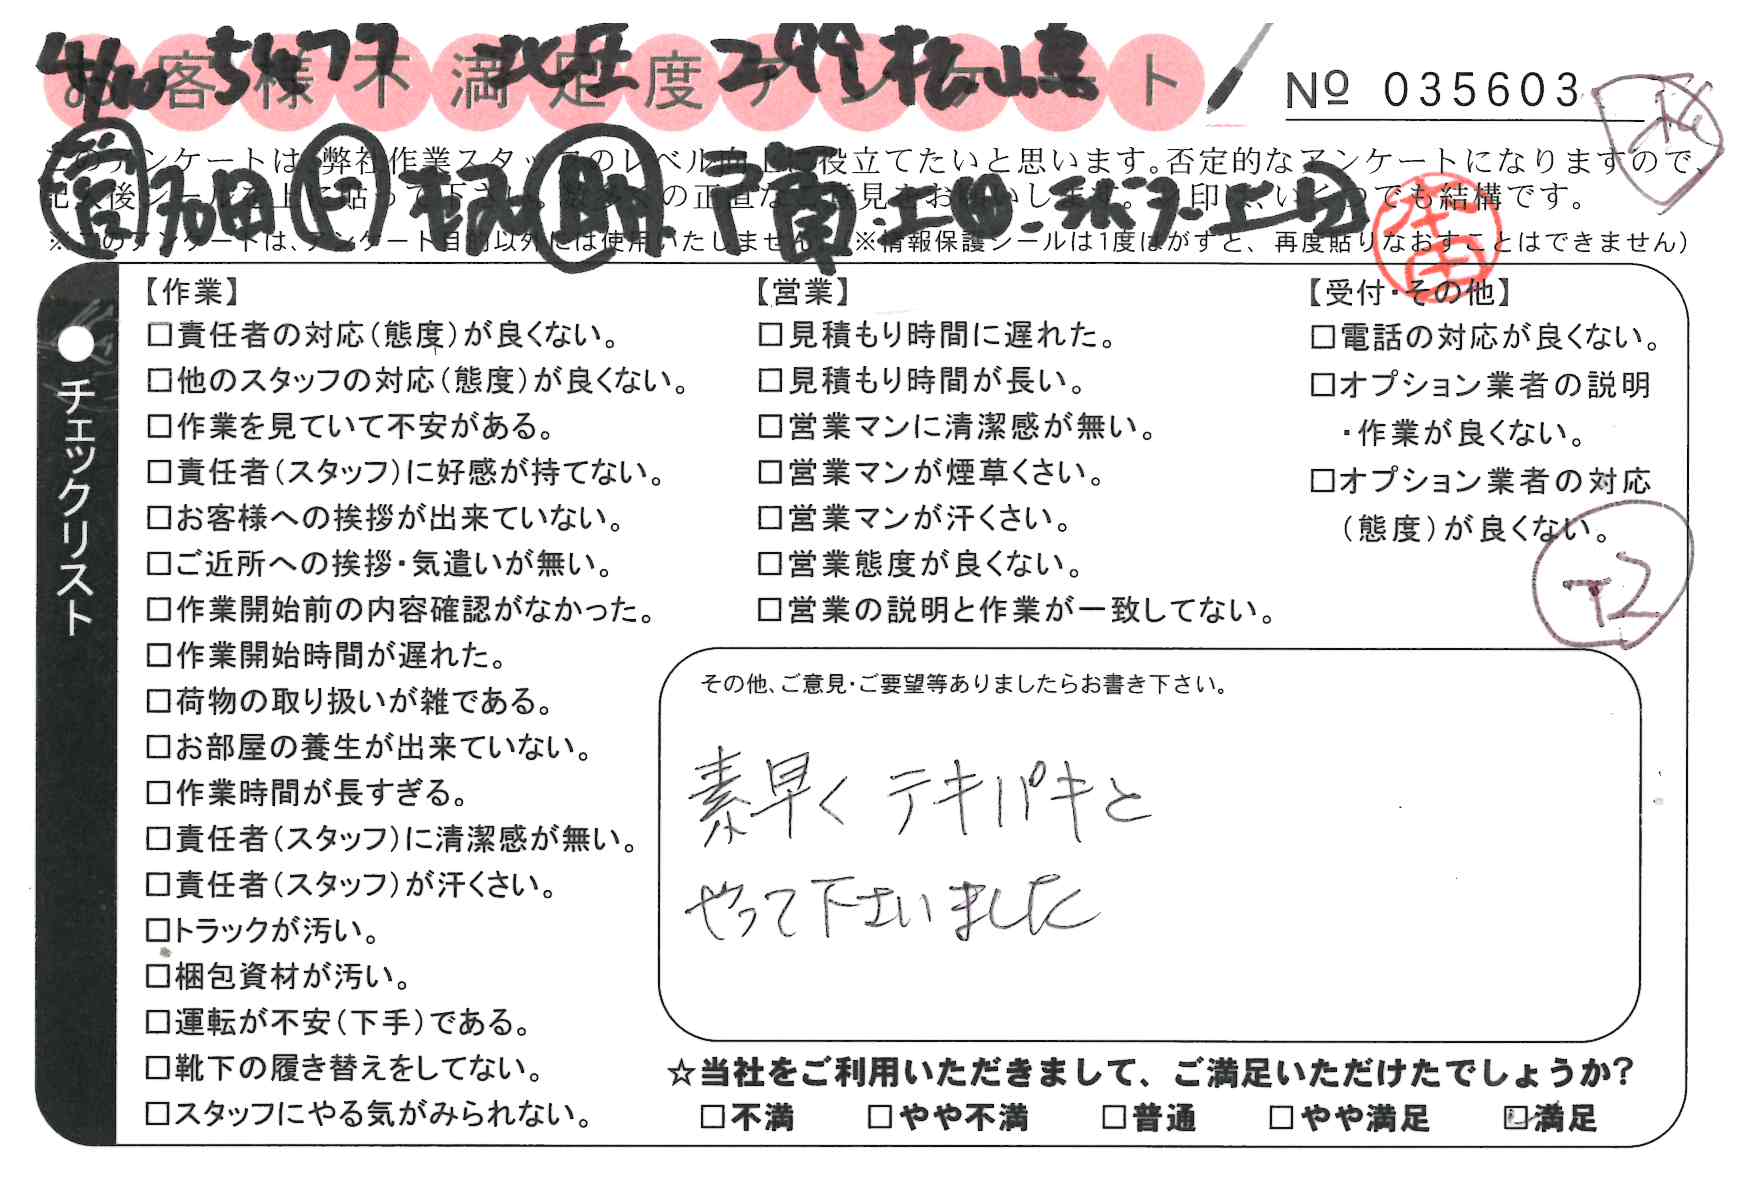 お客様不満足度アンケート
№ 035603
このアンケートは、弊社作業スタッフのレベル向上に役立てたいと思います。否定的なアンケートになりますので、
※このアンケートは、アンケート目的以外には使用いたしません。(※情報保護シールは1度はがすと、再度貼りなおすことはできません)
●チェックリスト
【作業】
□責任者の対応(態度)が良くない。
□他のスタッフの対応(態度)が良くない。
□作業を見ていて不安がある。
□責任者(スタッフ)に好感が持てない。
□お客様への挨拶が出来ていない。
□ご近所への挨拶・気遣いが無い。
□作業開始前の内容確認がなかった。
□作業開始時間が遅れた。
□荷物の取り扱いが雑である。
□お部屋の養生が出来ていない。
□作業時間が長すぎる。
□責任者(スタッフ)に清潔感が無い。
□責任者(スタッフ)が汗くさい。
□トラックが汚い。
□梱包資材が汚い。
□運転が不安(下手)である。
□靴下の履き替えをしてない。
□スタッフにやる気がみられない。
【営業】
□見積もり時間に遅れた。
□見積もり時間が長い。
□営業マンに清潔感が無い。
□営業マンが煙草くさい。
□営業マンが汗くさい。
□営業態度が良くない。
□営業の説明と作業が一致してない。
【受付・その他】
□電話の対応が良くない。
□オプション業者の説明
・作業が良くない。
□オプション業者の対応
(態度)が良くない。
T2
その他、ご意見・ご要望等ありましたらお書き下さい。
素早くテキパキと
やって下さいました
☆当社をご利用いただきまして、ご満足いただけたでしょうか?
□不満 □やや不満 □普通 □やや満足 ☑満足